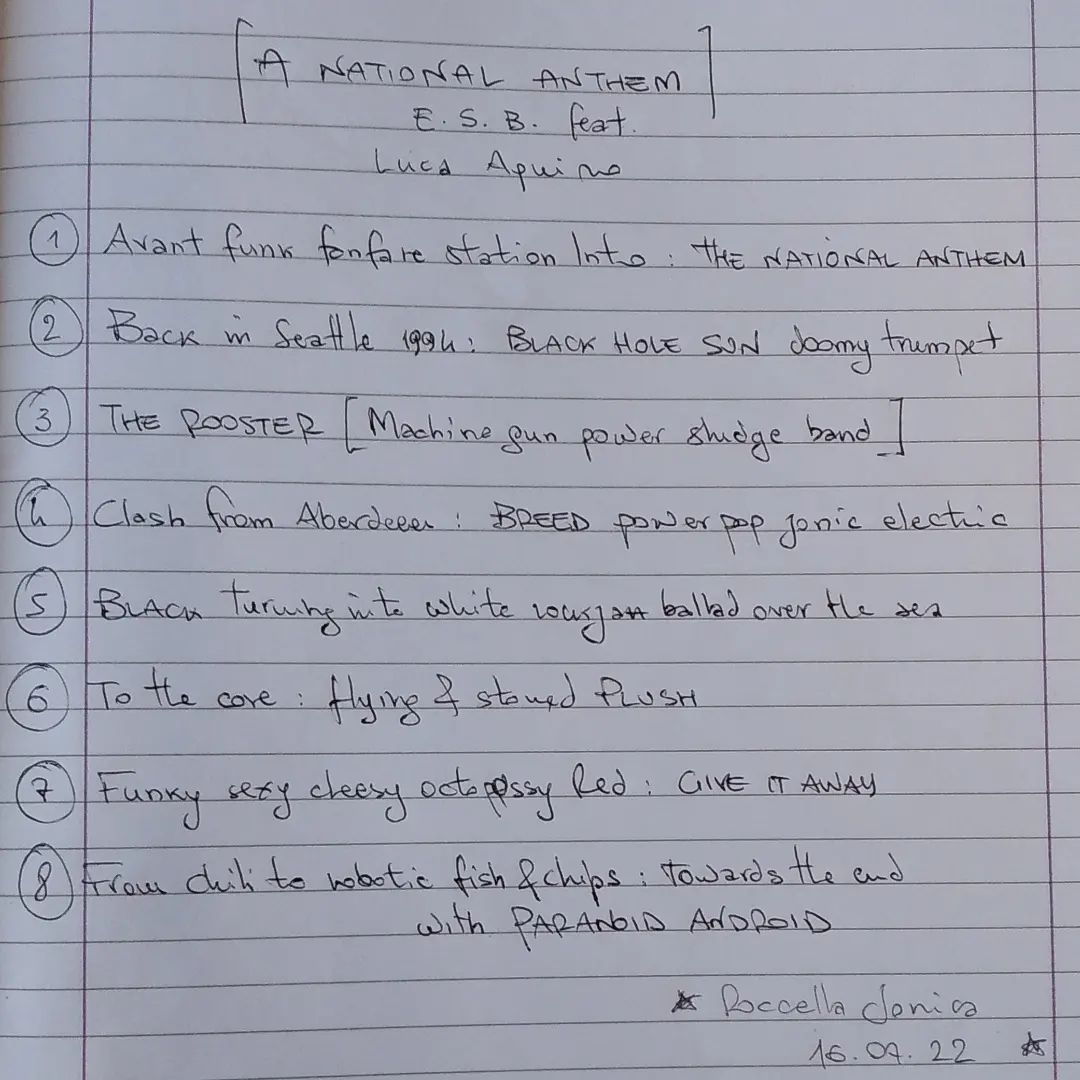 A NATIONAL ANTHEM
E. S. B. feat.
Luca Aquino
1 Avant funk fanfare station Into : THE NATIONAL ANTHEM
2 Back in Seattle 1994 : BLACK HOLE SUN doomy trumpet
3 THE ROOSTER [Machine gun power sludge band]
4 Clash from Aberdeen : BREED power pop jonic electric
5 BLACK turning into white ballad over the sea
6 To the core : flying & stoned PLUSH
7 Funky sexy cheesy octopussy Red : GIVE IT AWAY
8 From chili to robotic fish & chips : Towards the end
with PARANOID ANDROID
Roccella Jonica
16.07.22